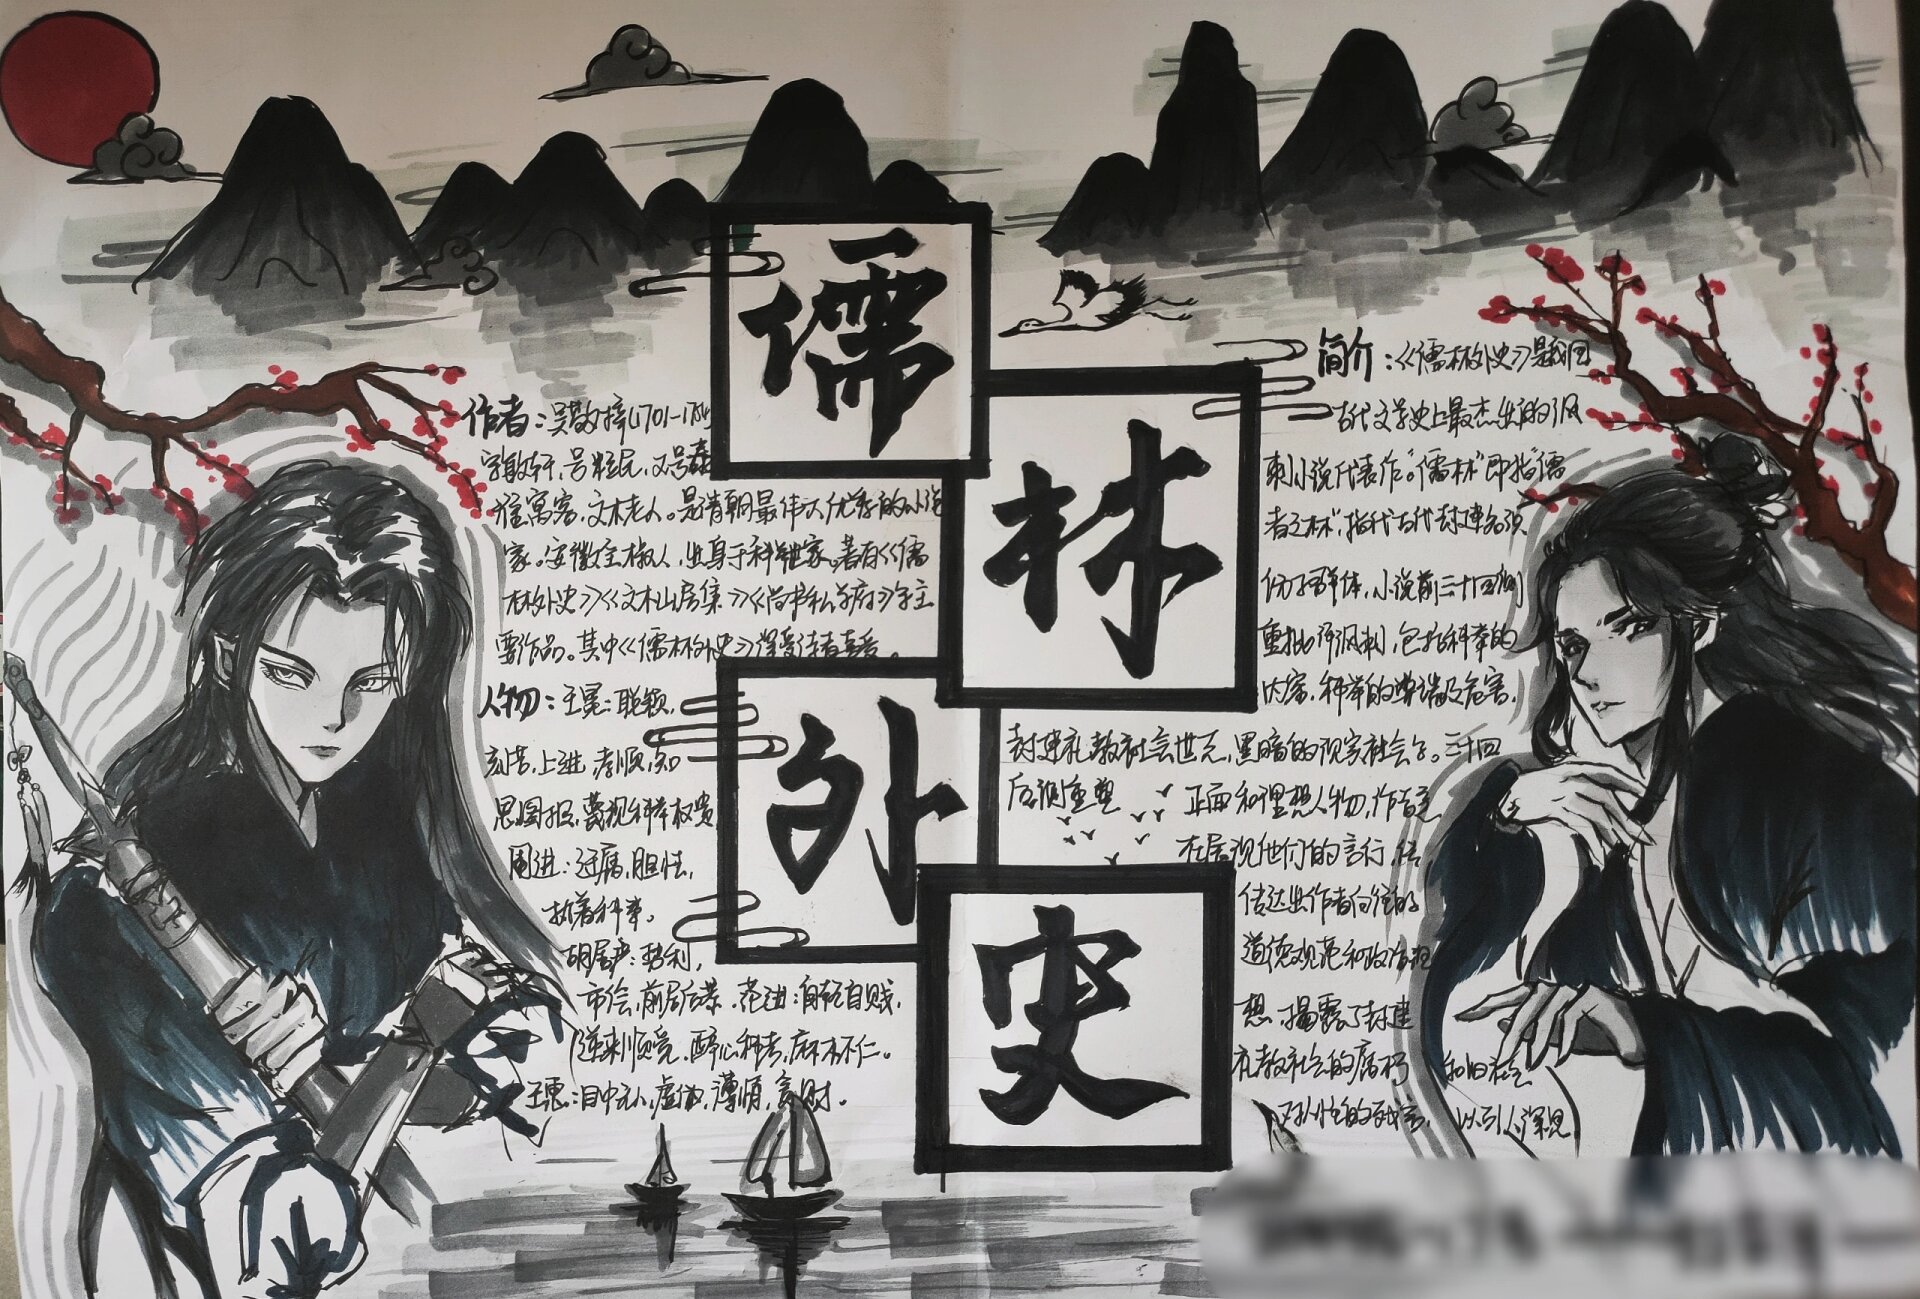 儒
林
外
史
作者：吴敬梓(1701-1754
字敏轩，号粒民，又号秦
淮寓客，文木老人。是清朝最伟大优秀的小说
家。安徽全椒人，出身于科举世家。著有《儒
林外史》《文木山房集》《尚书私学府》等主
要作品。其中《儒林外史》深受读者喜爱。
人物：王冕：聪颖，
刻苦，上进，孝顺，知
恩图报，蔑视科举权贵
周进：迂腐，胆怯，
执着科举。
胡屠户：势利，
市侩，前居后恭。范进：自轻自贱，
逆来顺受，醉心科考，麻木不仁。
王惠：目中无人，虚伪，薄情，贪财。
简介：《儒林外史》是我国
古代文学史上最杰出的讽
刺小说代表作。“儒林”即指“儒
者之林”，指代古代封建知识
份子群体，小说前三十回侧
重批评讽刺，包括科举的
内容，科举的弊端及危害，
封建礼教社会世态，黑暗的现实社会等。三十回
后侧重塑 正面和理想人物，作者意
在展现他们的言行，传
传达出作者向往的
道德观范和政治理
想，揭露了封建
礼教社会的腐朽 和旧社会
对人性的残害，以引人深思